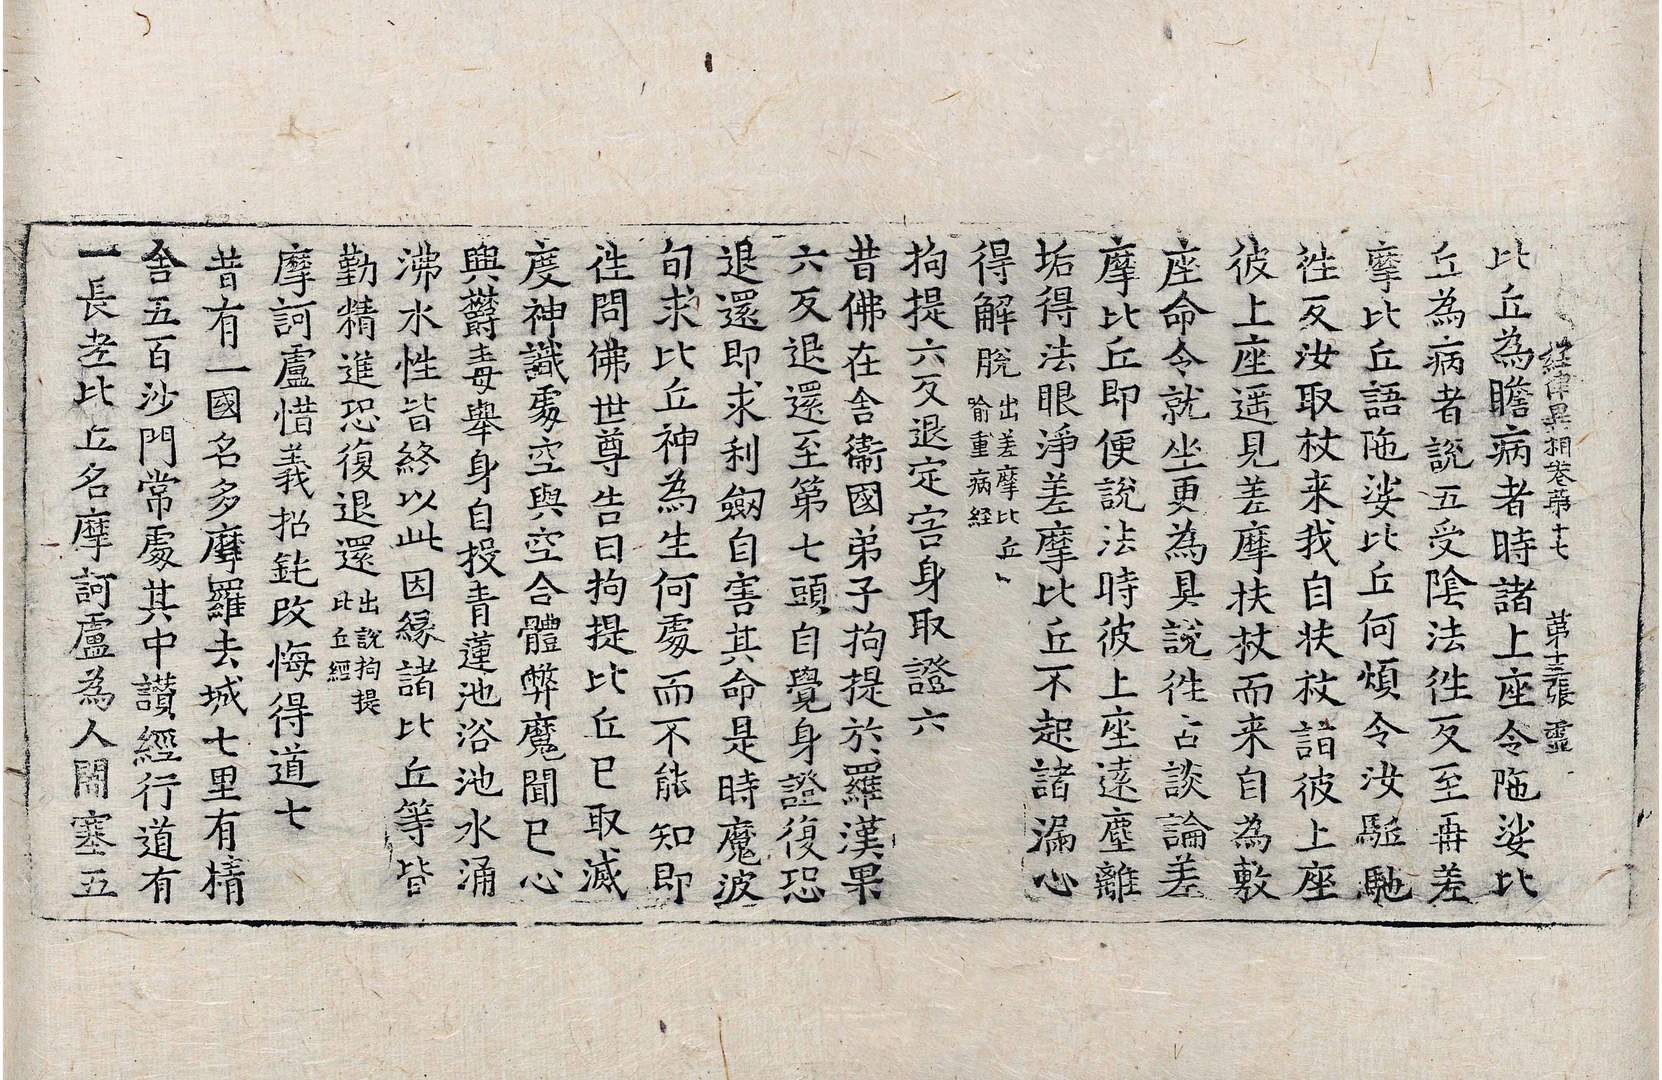 經律異相卷第十七　第十三張　靈
比丘為瞻病者時諸上座令陁娑比
丘為病者說五受陰法徃反至再差
摩比丘語陁娑比丘何煩令汝駈馳
徃反汝取杖来我自扶杖詣彼上座
彼上座遥見差摩扶杖而来自為敷
座命令就坐更為具說徃占談論差
摩比丘即便說法時彼上座遠塵離
垢得法眼淨差摩比丘不起諸漏心
得解脫出差摩比丘喻重病經
拘提六反退定害身取證六
昔佛在舎衞國弟子拘提於羅漢果
六反退還至第七頭自覺身證復恐
退還即求利劒自害其命是時魔波
旬求比丘神為生何處而不能知即
徃問佛世尊告曰拘提比丘已取滅
度神識處空與空合體弊魔聞已心
興欝毒舉身自投青蓮池浴池水涌
沸水性皆終以此因緣諸比丘等皆
勤精進恐復退還出說拘提比丘經
摩訶盧惜義招鈍改悔得道七
昔有一國名多摩羅去城七里有精
舎五百沙門常處其中讃經行道有
一長老比丘名摩訶盧為人闇塞五